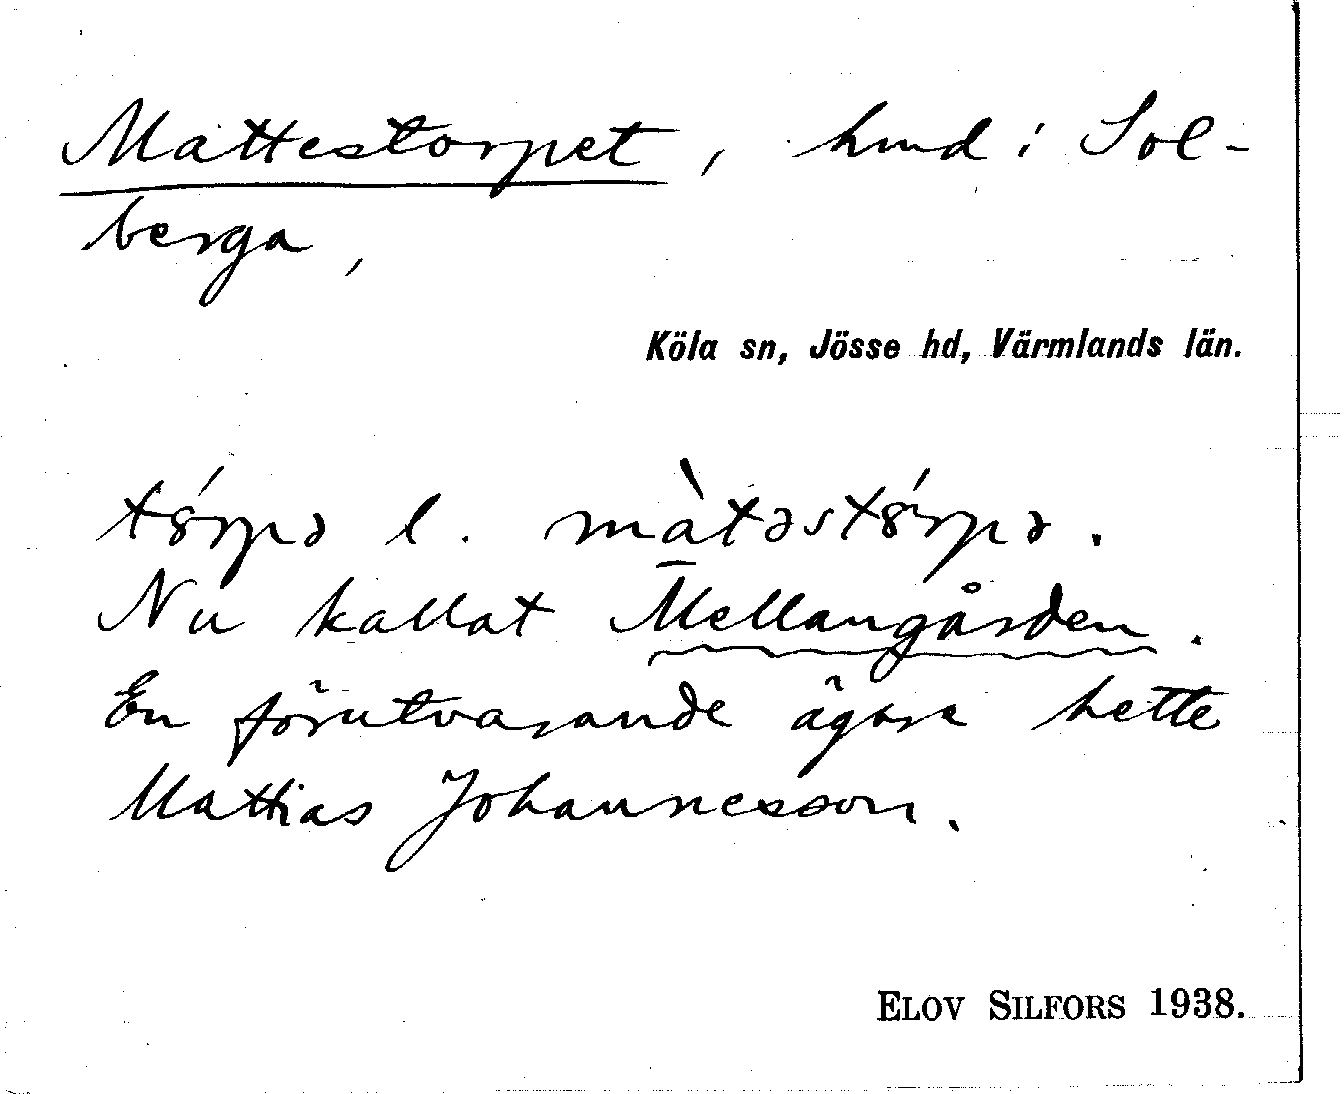 Mattestorpet, hmd i Sol-
berga,
Köla sn, Jösse hd, Värmlands län.
tórpə l. màtəstórpə.
Nu kallat Mellangården.
En förutvarande ägare hette
Mattias Johannesson.
ELOV SILFORS 1938.